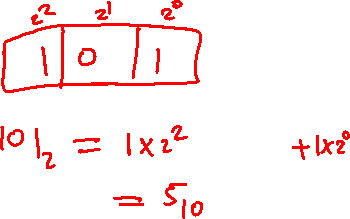 2² 2¹ 2⁰
1 0 1
101₂ = 1x2² +1x2⁰
= 5₁₀